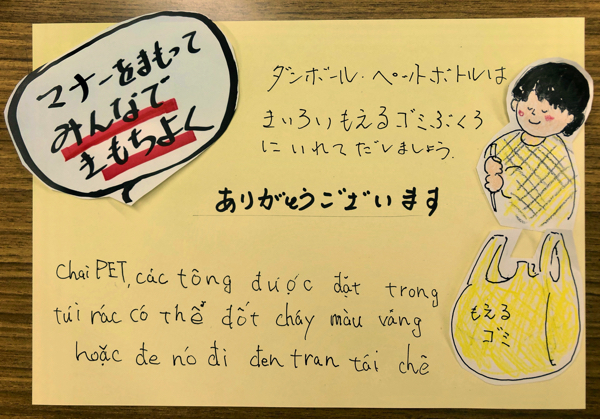 マナーをまもって
みんなで
きもちよく
ダンボール・ペットボトルは
きいろいもえるゴミぶくろ
にいれてだしましょう。
ありがとうございます
もえる
ゴミ
Chai PET, các tông được đặt trong
túi rác có thể đốt cháy màu vàng
hoặc đe nó đi đen tran tái chê